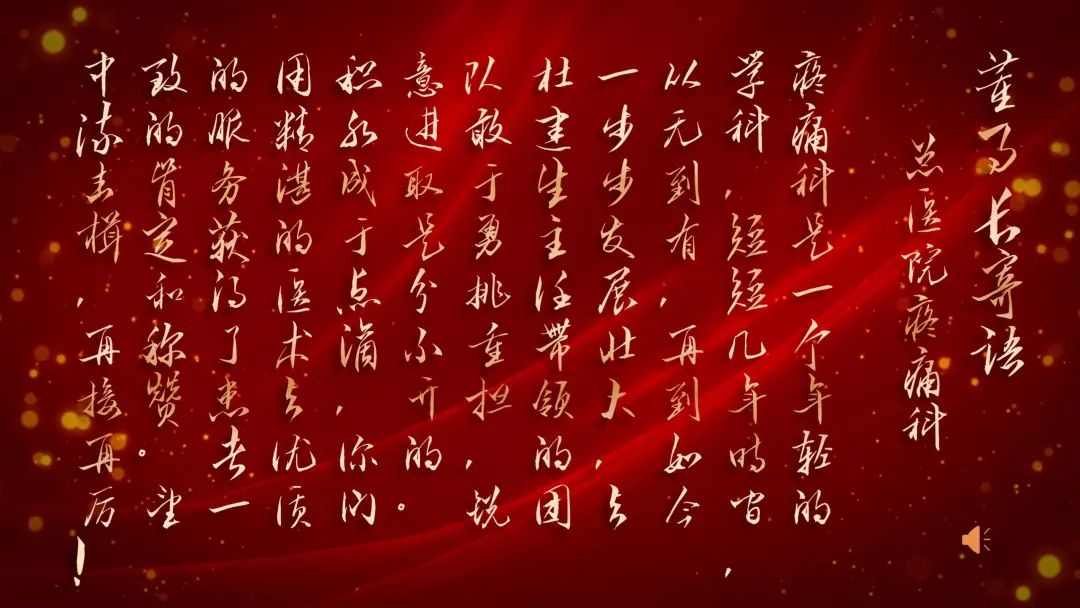 董事长寄语
总医院疼痛科
疼痛科是一个年轻的
学科，短短几年时间，
从无到有，再到如今
一步步发展壮大，与
杜建生主任带领的团
队敢于勇挑重担，锐
意进取是分不开的。
积水成于点滴，你们
用精湛的医术与优质
的服务获得了患者一
致的肯定和称赞。望
中流击楫，再接再厉！